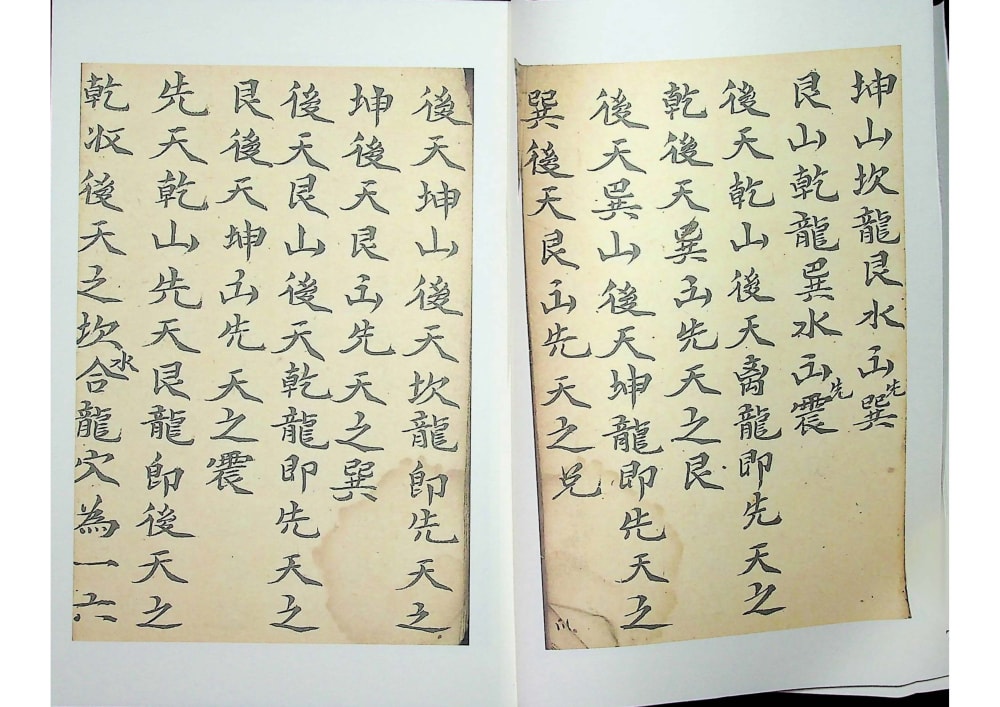 坤山坎龍艮水出先巽
艮山乾龍巽水出先震
後天乾山後天离龍即先天之
乾後天巽出先天之艮
後天巽山後天坤龍即先天之
巽後天艮出先天之兌
後天坤山後天坎龍即先天之
坤後天艮出先天之巽
後天艮山後天乾龍即先天之
艮後天坤出先天之震
先天乾山先天艮龍即後天之
乾収後天之坎水合龍穴為一六